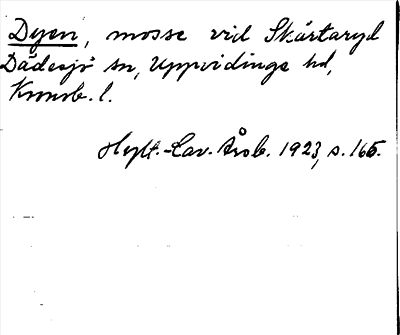 Dyen, mosse vid Skärtaryd
Dädesjö sn, Uppvidinge hd,
Kronob. l.
Hylt.-Cav. Årsb. 1923, s. 165.